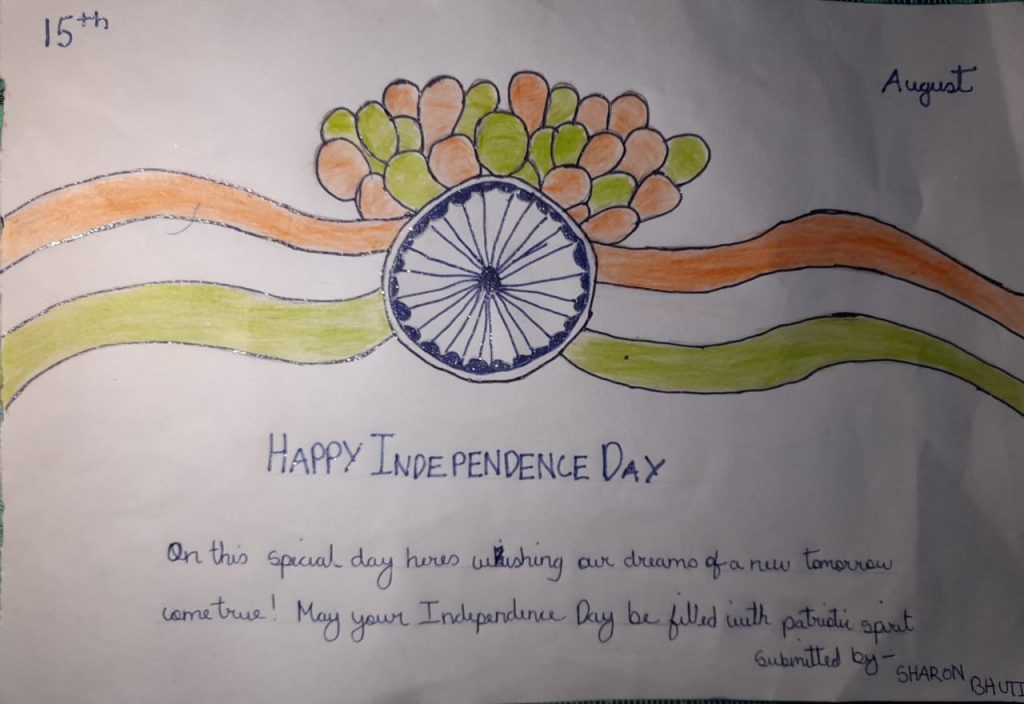 15th
August
HAPPY INDEPENDENCE DAY
On this special day heres wishing our dreams of a new tomorrow
come true! May your Independence Day be filled with patriotic spirit
submitted by-
SHARON